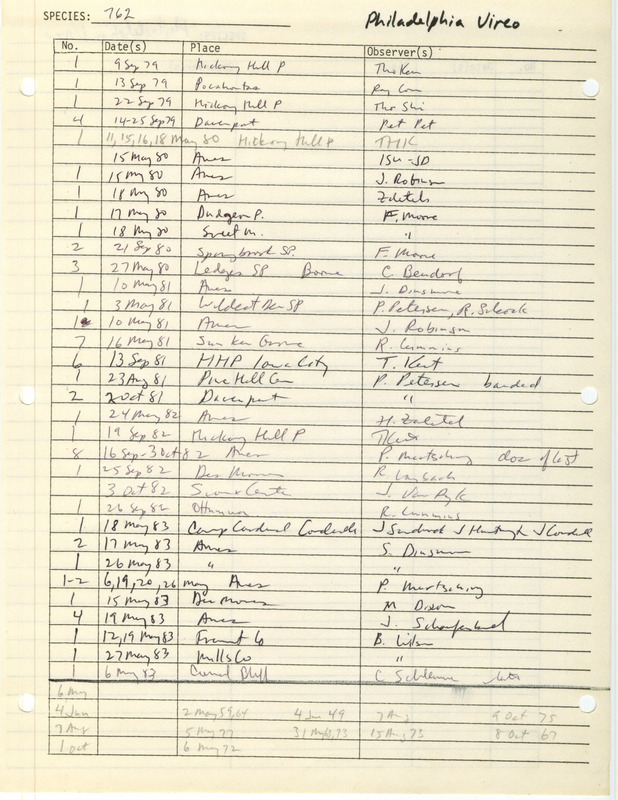 SPECIES: 762 Philadelphia Vireo
No. Date(s) Place Observer(s)
1 9 Sep 79 Hickory Hill P Tho Ken
1 13 Sep 79 Pocahontas Ray
1 22 Sep 79 Hickory Hill P Tho
4 14-25 Sep 79 Davenport Pet Pet
1 11,15,16,18 May 80 Hickory Hill P THK
15 May 80 Ames ISU-JD
1 15 May 80 Ames J. Robinson
1 18 May 80 Ames Zaletels
1 17 May 80 Dudgeon P. F. Moore
1 18 May 80 Sweet M. "
2 21 Sep 80 Springbrook SP. F. Moore
3 27 May 80 Ledges SP Boone C. Bendorf
1 10 May 81 Ames J. Dinsmore
1 3 May 81 Wildcat Den SP P. Petersen, R. Silcock
1 10 May 81 Ames J. Robinson
7 16 May 81 Sunken Grove R. Cummins
6 13 Sep 81 HHP Iowa City T. Kent
1 23 Aug 81 Pine Hill Cem P. Petersen banded
2 2 Oct 81 Davenport "
1 24 May 82 Ames H. Zaletel
1 19 Sep 82 Hickory Hill P TKent
8 16 Sep-3 Oct 82 Ames P. Martsching doc of last
1 25 Sep 82 Des Moines R. Laubach
3 Oct 82 Sioux Center J. Van Dyk
1 26 Sep 82 Ottumwa R. Cummins
1 18 May 83 Camp Cardinal J Sandrock J Huntington J
2 17 May 83 Ames S. Dinsmore
1 26 May 83 " "
1-2 6,19,20,26 May Ames P. Martsching
1 15 May 83 Des Moines M Dixon
4 19 May 83 Ames J.
1 12,19 May 83 Fremont Co B. Wilson
1 27 May 83 Mills Co "
1 6 May 83 Council Bluff C
6 May
4 Jun 2 May 59,64 4 Jun 49 7 Aug 9 Oct 75
7 Aug 5 May 77 31 May 63,73 15 Aug 73 8 Oct 67
1 Oct 6 May 72